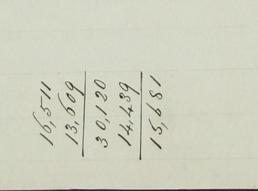 16,511
13,609
30,120
14,439
15,681